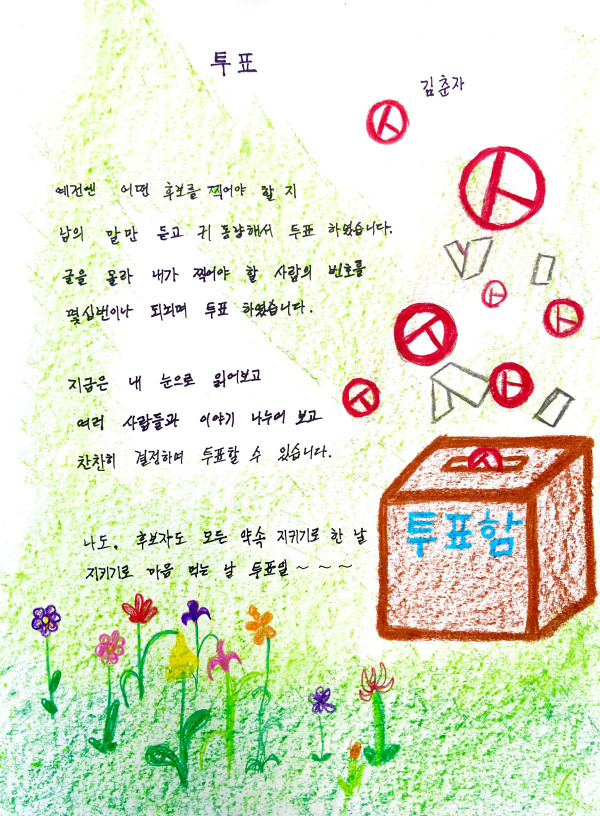 투표
김춘자
예전엔 어떤 후보를 찍어야 할 지
남의 말만 듣고 귀 동냥해서 투표 하였습니다.
글을 몰라 내가 찍어야 할 사람의 번호를
몇십번이나 되뇌며 투표 하였습니다.
지금은 내 눈으로 읽어보고
여러 사람들과 이야기 나누어 보고
찬찬히 결정하여 투표할 수 있습니다.
나도, 후보자도 모든 약속 지키기로 한 날
지키기로 마음 먹는 날 투표일 ~ ~ ~
투표함